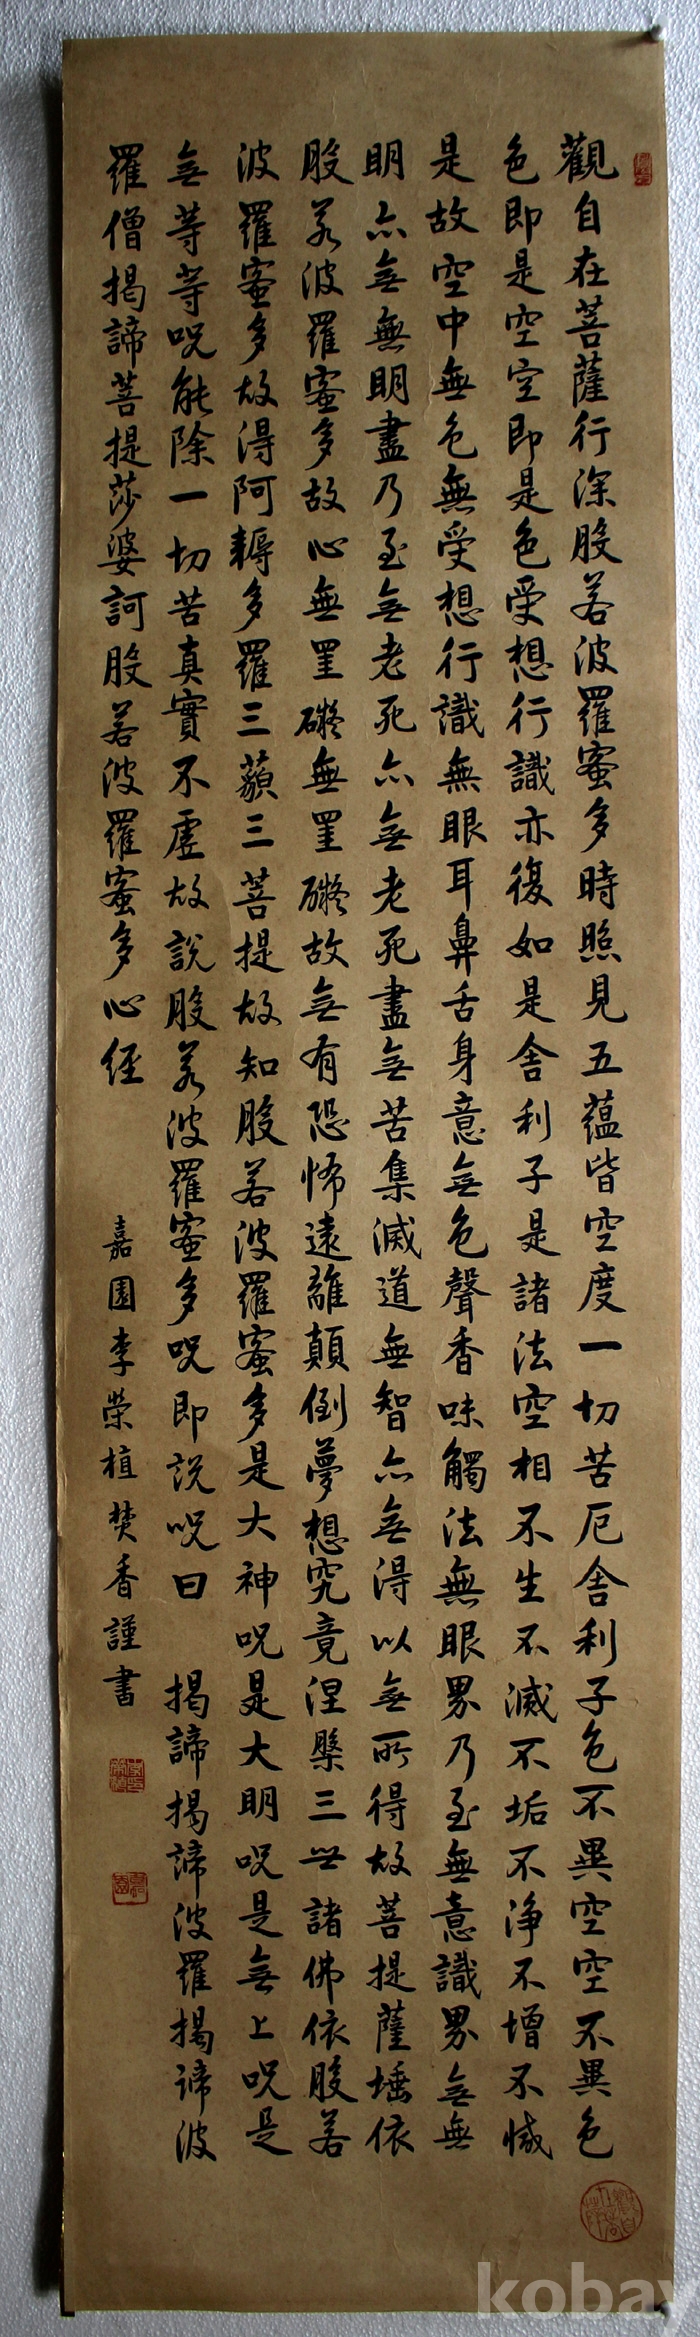 觀自在菩薩行深般若波羅蜜多時照見五蘊皆空度一切苦厄舍利子色不異空空不異色
色即是空空即是色受想行識亦復如是舍利子是諸法空相不生不滅不垢不淨不增不減
是故空中無色無受想行識無眼耳鼻舌身意無色聲香味觸法無眼界乃至無意識界無無
明亦無無明盡乃至無老死亦無老死盡無苦集滅道無智亦無得以無所得故菩提薩埵依
般若波羅蜜多故心無罣礙無罣礙故無有恐怖遠離顛倒夢想究竟涅槃三世諸佛依般若
波羅蜜多故得阿耨多羅三藐三菩提故知般若波羅蜜多是大神呪是大明呪是無上呪是
無等等呪能除一切苦真實不虛故說般若波羅蜜多呪即說呪曰 揭諦揭諦波羅揭諦波
羅僧揭諦菩提莎婆訶般若波羅蜜多心經
嘉園李榮植焚香謹書
kobay